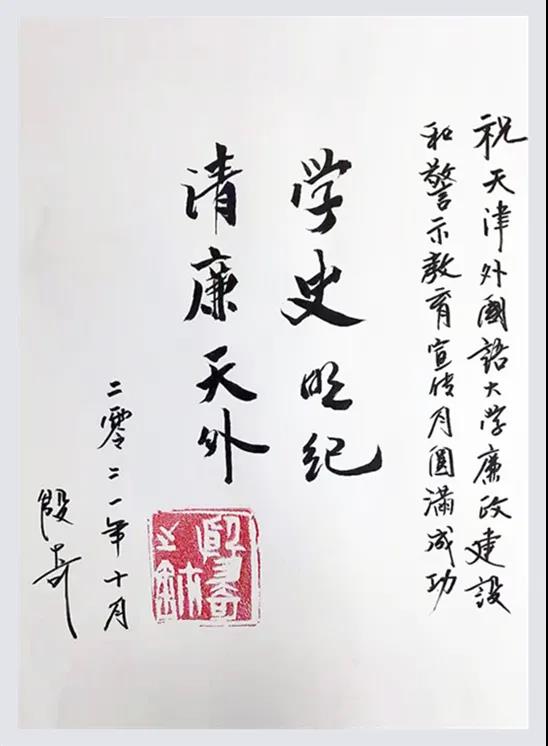 祝天津外國語大学廉政建設
和警示教育宣传月圓滿成功
学史明纪
清廉天外
二零二一年十月
殷奇